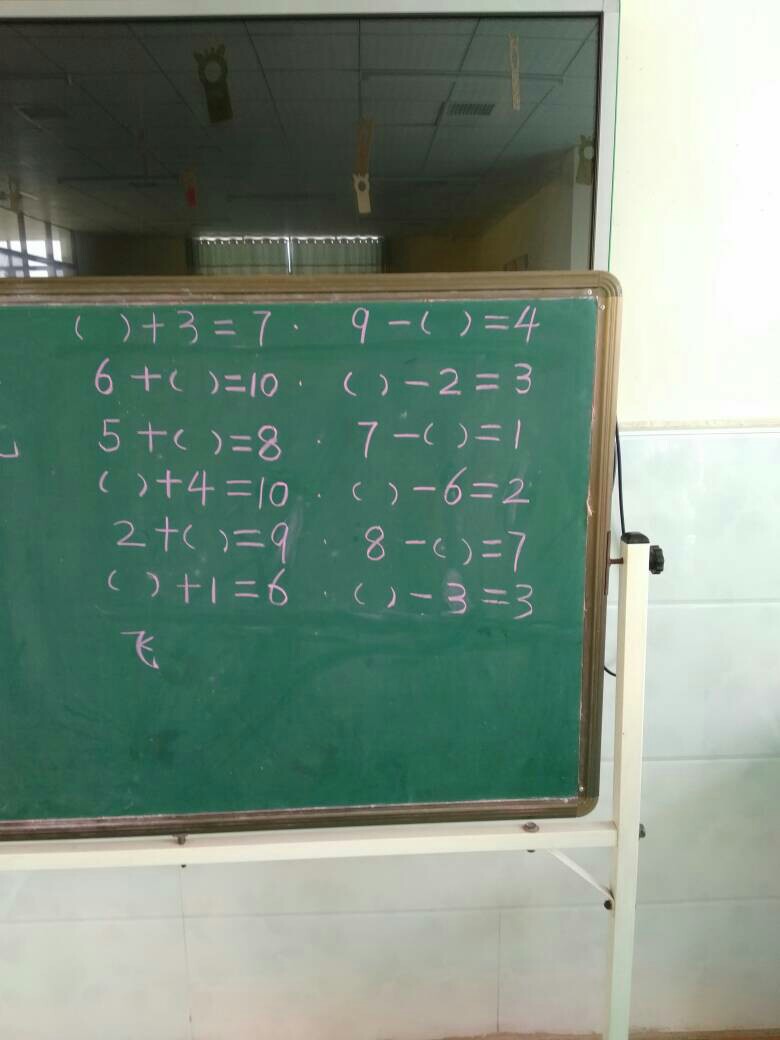 ( ) + 3 = 7 . 9 - ( ) = 4
6 + ( ) = 10 . ( ) - 2 = 3
5 + ( ) = 8 . 7 - ( ) = 1
( ) + 4 = 10 . ( ) - 6 = 2
2 + ( ) = 9 . 8 - ( ) = 7
( ) + 1 = 6 . ( ) - 3 = 3
飞